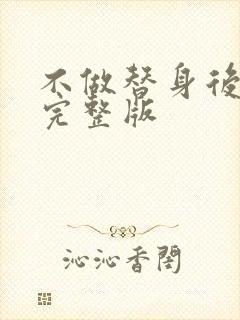 不做替身後
完整版
沁沁香閨